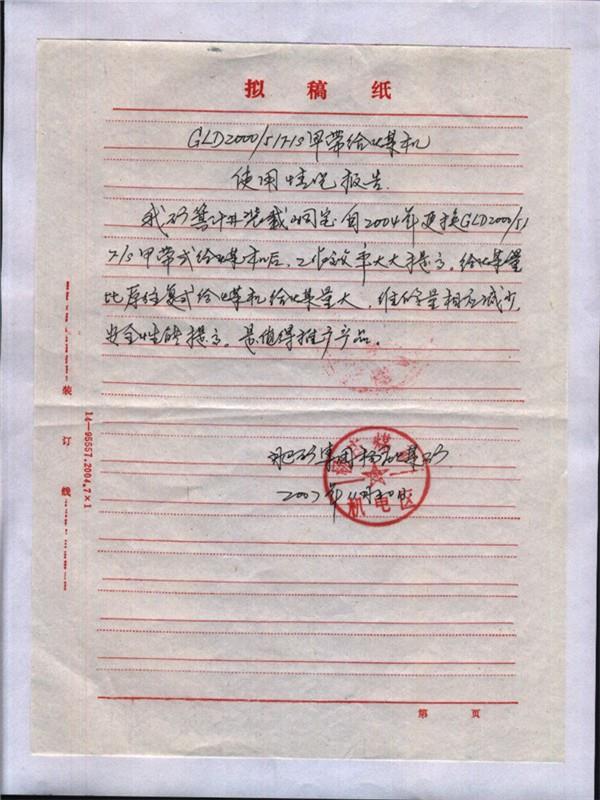 拟稿纸
GLD2000/5/7/S甲带给煤机
使用情况报告
我矿箕斗井装载硐室自2004年更换GLD2000/5/
7/S甲带式给煤机后，工作效率大大提高，给煤量
比原往复式给煤机给煤量大，维修量相应减少，
安全性能提高。是值得推广产品。
肥矿集团杨庄煤矿
2007年11月20日
机电区
装订线
14—95557.2004.7×1
第 页